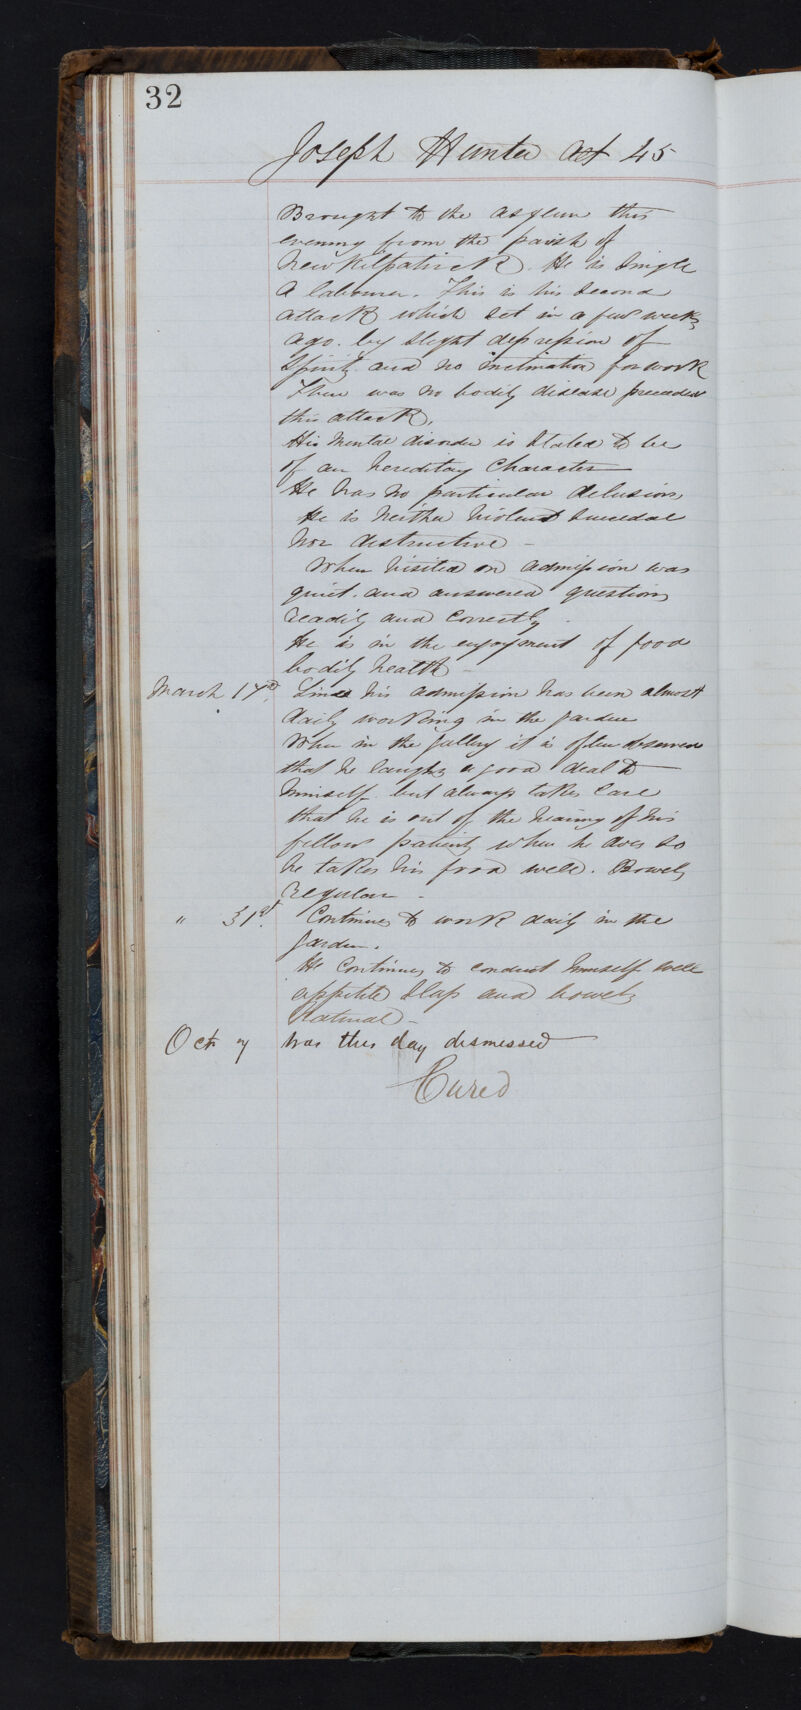 32
Joseph Hunter Aet 45
Brought to the asylum this
evening from the parish of
New Kilpatrick. He is Single
a labourer. This is his second
attack which set in a few weeks
ago. by slight depression of
Spirits and no inclination for work
There was no bodily disease preceded
this attack.
His Mental disorder is Stated to be
of an hereditary Character
He has no particular delusions
He is neither violent suicidal
nor destructive –
When visited on admission was
quiet. and answered questions
readily and correctly.
He is in the enjoyment of good
bodily health –
March 17th. Since his admission has been almost
daily working in the garden
When in the gallery it is often observed
that he laughs a good deal to
himself. but always takes care
that he is out of the hearing of his
fellow patients when he does so
he takes his food well. Bowels
Regular –
" 31st. Continues to work daily in the
garden.
He continues to conduct himself well
appetite Sleep and bowels
Natural –
Oct 7 was this day dismissed
Cured